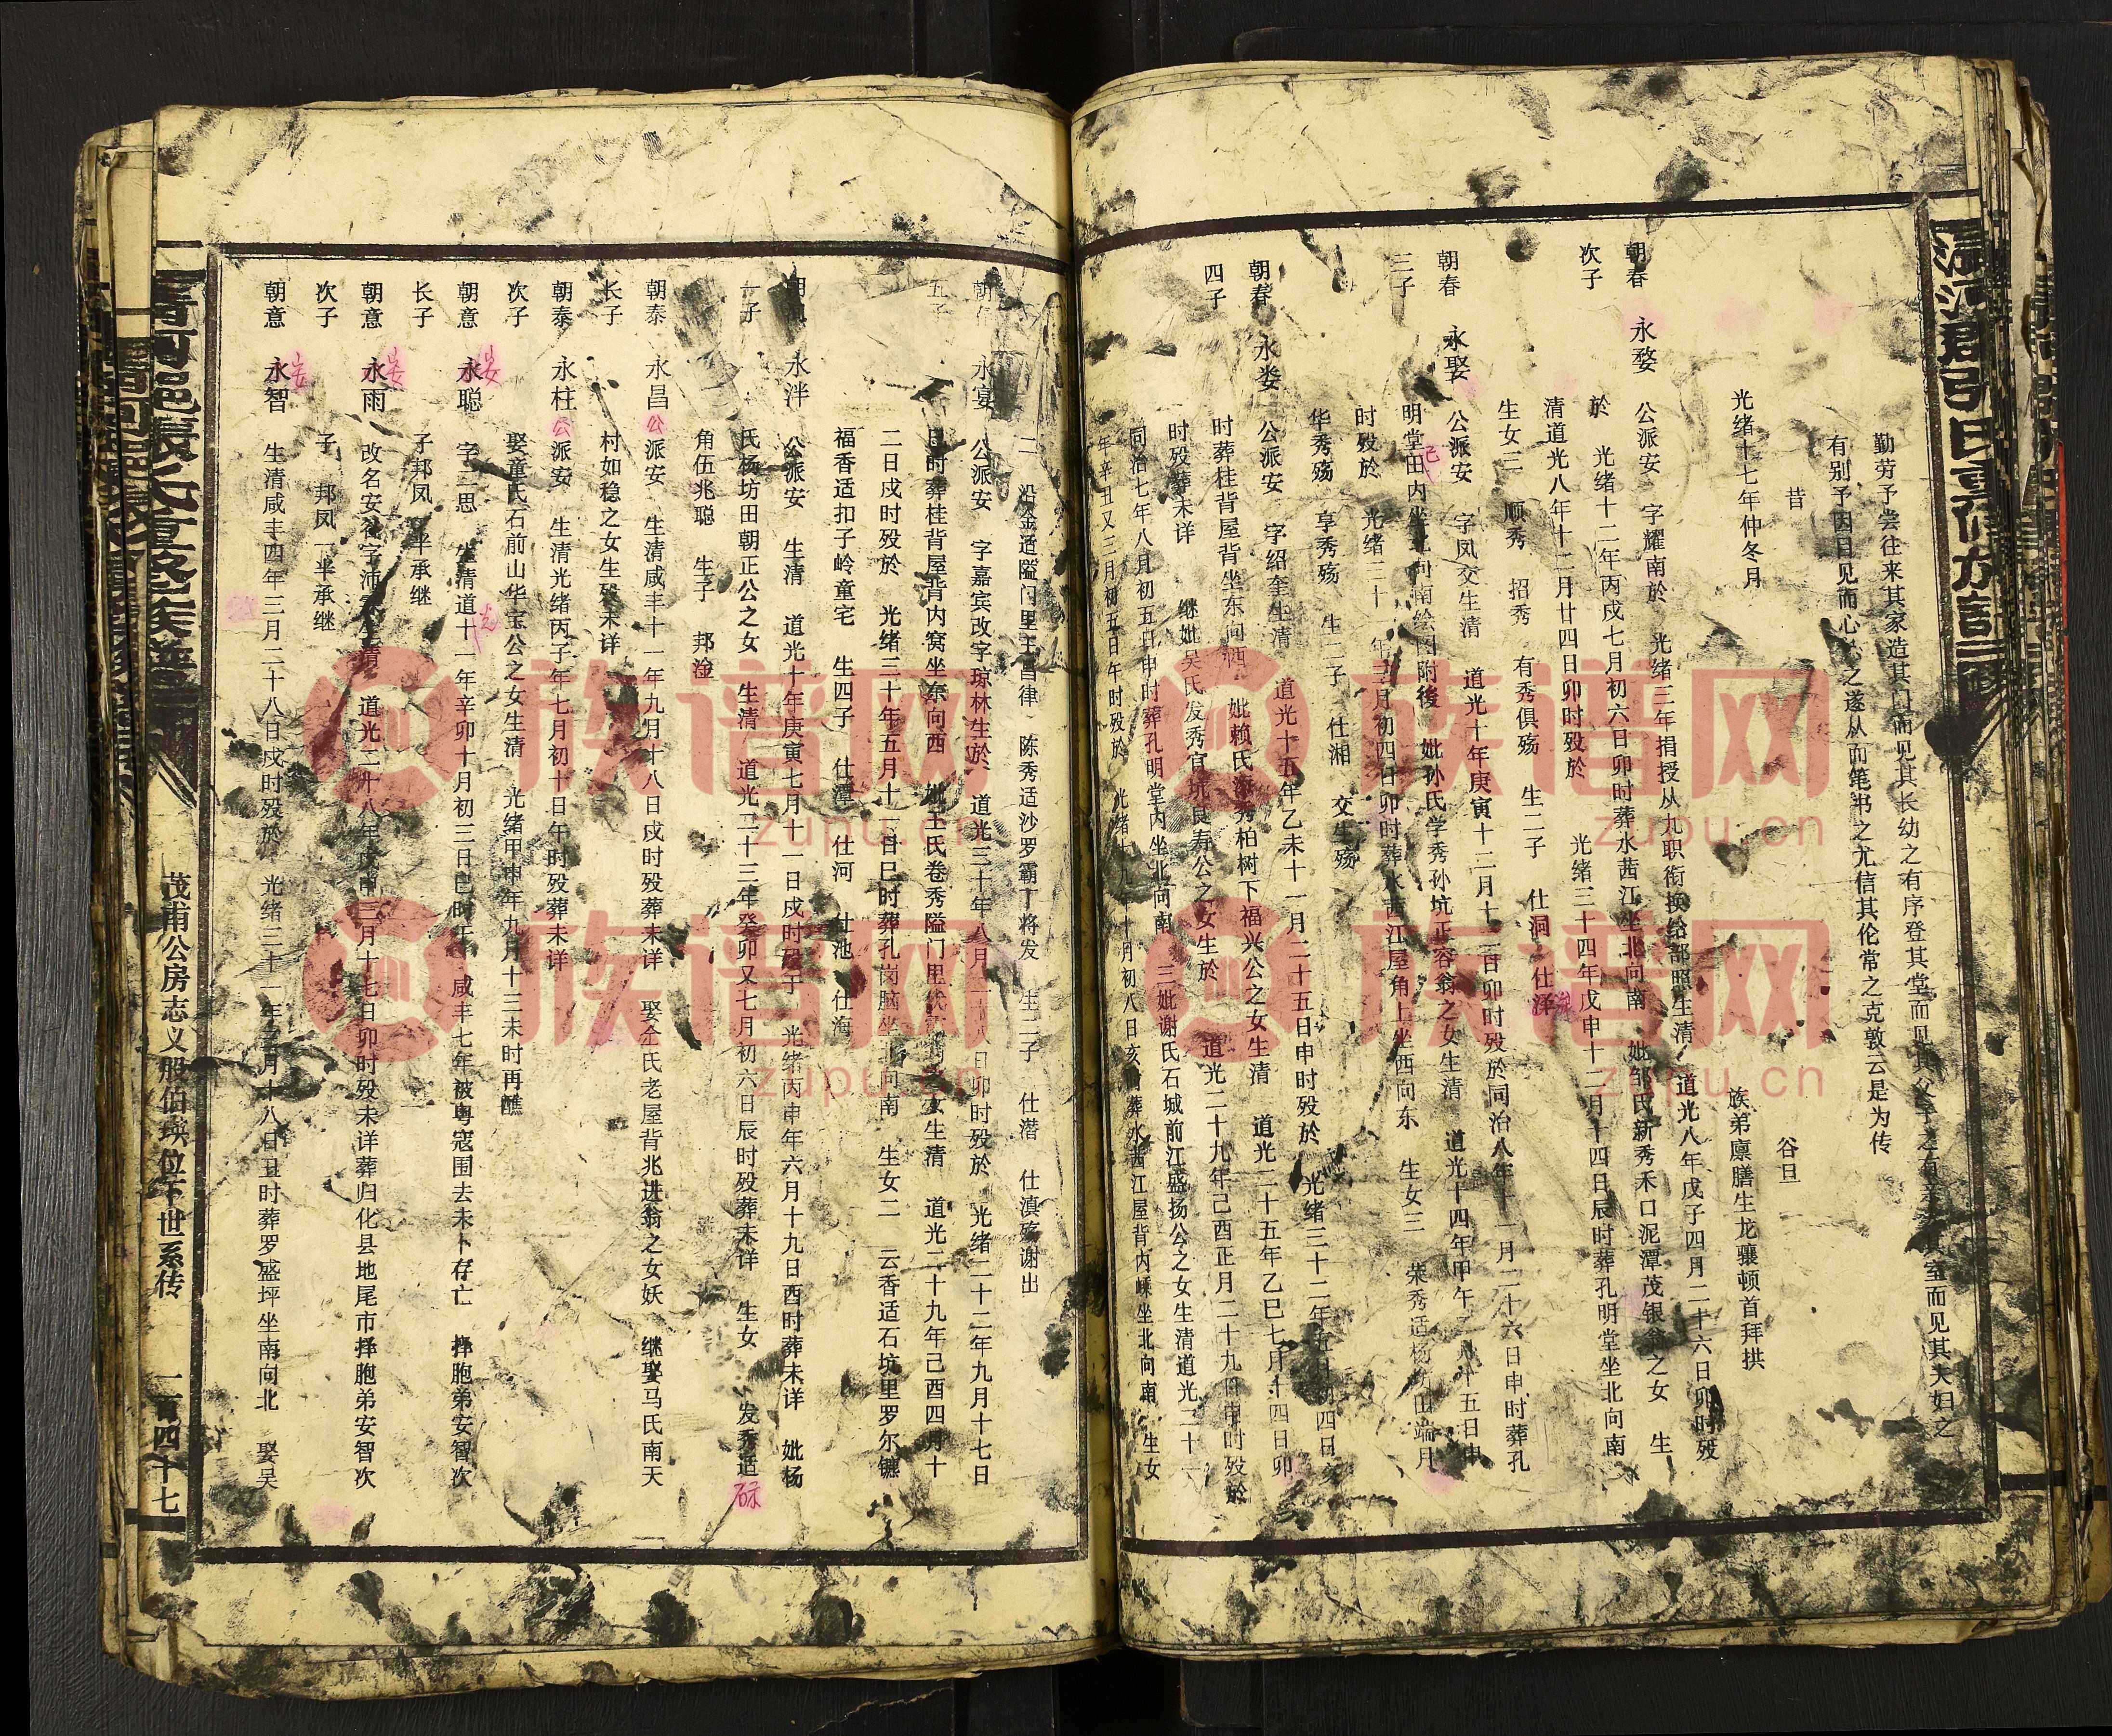 勤劳予尝往来其家造其门而见其长幼之有序登其堂而见其父子之有亲其室而见其夫妇之
有别予因目见而心之遂从而笔书之尤信其伦常之克敦云是为传
昔 谷旦
光绪十七年仲冬月 族弟廪膳生龙骧顿首拜拱
朝春 永婺 公派安 字耀南於 光绪三年捐授从九职衔换给部照生清 道光八年戊子四月二十六日卯时殁
次子 於 光绪十二年丙戌七月初六日卯时葬水茜江坐北向南 妣邹氏新秀禾口泥潭茂银翁之女 生
清道光八年十二月廿四日卯时殁於 光绪三十四年戊申十二月十四日辰时葬孔明堂坐北向南
生女三 顺秀 招秀 有秀俱殇 生二子 仕洞 仕泽
朝春 永娶 公派安 字凤交生清 道光十年庚寅十二月十二日卯时殁於同治八年十一月二十六日申时葬孔
三子 明堂田内坐北向南绘图附後 妣孙氏学秀孙坑正容翁之女生清 道光十四年甲午二月十五日申
时殁於 光绪二十一年三月初四日卯时葬水茜江屋角上坐西向东 生女三 荣秀适杨坊山端月
华秀殇 享秀殇 生二子 仕湘 交生殇
朝春 永娄 公派安 字绍奎生清 道光十五年乙未十一月二十五日申时殁於 光绪三十二年五月初四日亥
四子 时葬桂背屋背坐东向西 妣赖氏添秀柏树下福兴公之女生清 道光二十五年乙巳七月十四日卯
时殁葬未详 继妣吴氏发秀官坑良寿公之女生於 道光二十九年己酉正月二十九日申时殁於
同治七年八月初五日申时葬孔明堂内坐北向南 三妣谢氏石城前江盛扬公之女生清道光二十一
年辛丑又三月初五日午时殁於 光绪十九年十月初八日亥时葬水茜江屋背内嵊坐北向南 生女
二 沿金适隘门里王昌律 陈秀适沙罗霸丁将发 生二子 仕潜 仕滇殇谢出
永宴 公派安 字嘉宾改字琼林生於 道光三十年八月二十八日卯时殁於 光绪二十二年九月十七日
五子 日时葬桂背屋背内窝坐东向西 妣王氏卷秀隘门里女生清 道光二十九年己酉四月十
二日戌时殁於 光绪三十年五月十一日巳时葬孔岗脑坐北向南 生女二 云香适石坑里罗尔镳
福香适扣子岭童宅 生四子 仕潭 仕河 仕池 仕海
永泮 公派安 生清 道光十年庚寅七月十一日戌时殁于 光绪丙申年六月十九日酉时葬未详 妣杨
氏杨坊田朝正公之女 生清 道光二十三年癸卯又七月初六日辰时殁葬未详 生女 发秀适
角伍兆聪 生子 邦淦
朝泰 永昌 公派安 生清咸丰十一年九月十八日戌时殁葬未详 娶仝氏老屋背兆进翁之女妖 继娶马氏南天
长子 村如稳之女生殁未详
朝泰 永柱 公派安 生清光绪丙子年七月初十日午时殁葬未详
次子 娶童氏石前山华宝公之女生清 光绪甲申年九月十三未时再醮
朝意 永聪 字三思 生清道十一年辛卯十月初三日巳时于 咸丰七年被粤寇围去未卜存亡 择胞弟安智次
长子 子邦凤一半承继
朝意 永雨 改名安谷字沛 生清 道光二十八年戊申三月十七日卯时殁未详葬归化县地尾市择胞弟安智次
次子 子 邦凤一半承继
朝意 永智 生清咸丰四年三月二十八日戌时殁於 光绪三十一年三月十八日丑时葬罗盛坪坐南向北 娶吴
茂甫公房志义股伯瑛位下世系传 一百四十七
族谱网
zupu.cn
族谱网
zupu.cn
族谱网
zupu.cn
族谱网
zupu.cn